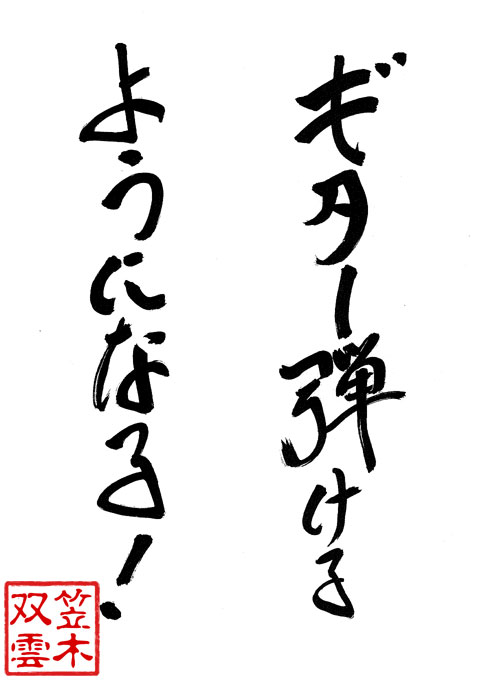 ギター弾ける
ようになる!
笠木
双雲